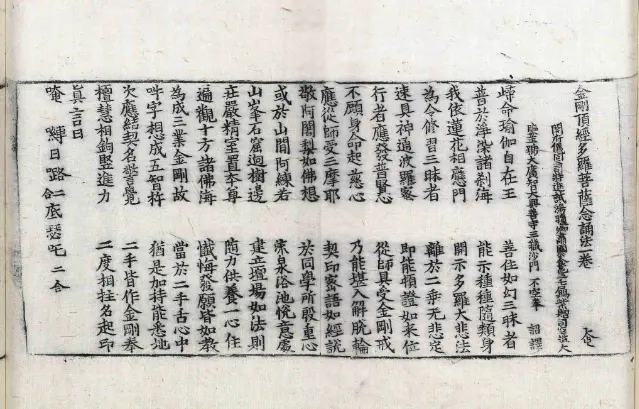 金剛頂經多羅菩薩念誦法一卷
開府儀同三司特進試鴻臚卿肅國公食邑三千戶賜紫贈司空謚大
大廣智大興善寺三藏沙門 不空奉 詔譯
歸命瑜伽自在王 善住如幻三昧者
普於淨染諸刹海 能示種種隨類身
我依蓮花相應門 開示多羅大悲法
為令修習三昧者 離於二乘无悲定
速具神通波羅蜜 即能頓證如來位
行者應發普賢心 從師具受金剛戒
不顧身命起慈心 乃能堪入解脫輪
應從師受三摩耶 契印密語如經說
敬阿闍梨如佛想 於同學所殷重心
或於山間阿練若 流泉浴池悅意處
山峯石窟迥樹邊 建立壇場如法則
莊嚴精室置本尊 隨力供養一心住
遍觀十方諸佛海 懺悔發願皆如教
為成三業金剛故 當於二手舌心中
吽字想成五智杵 猶是加持能悉地
次應結契名警覺 二手皆作金剛拳
檀慧相鉤竪進力 二度相拄名起印
真言曰
唵 嚩日路二合底瑟吒二合